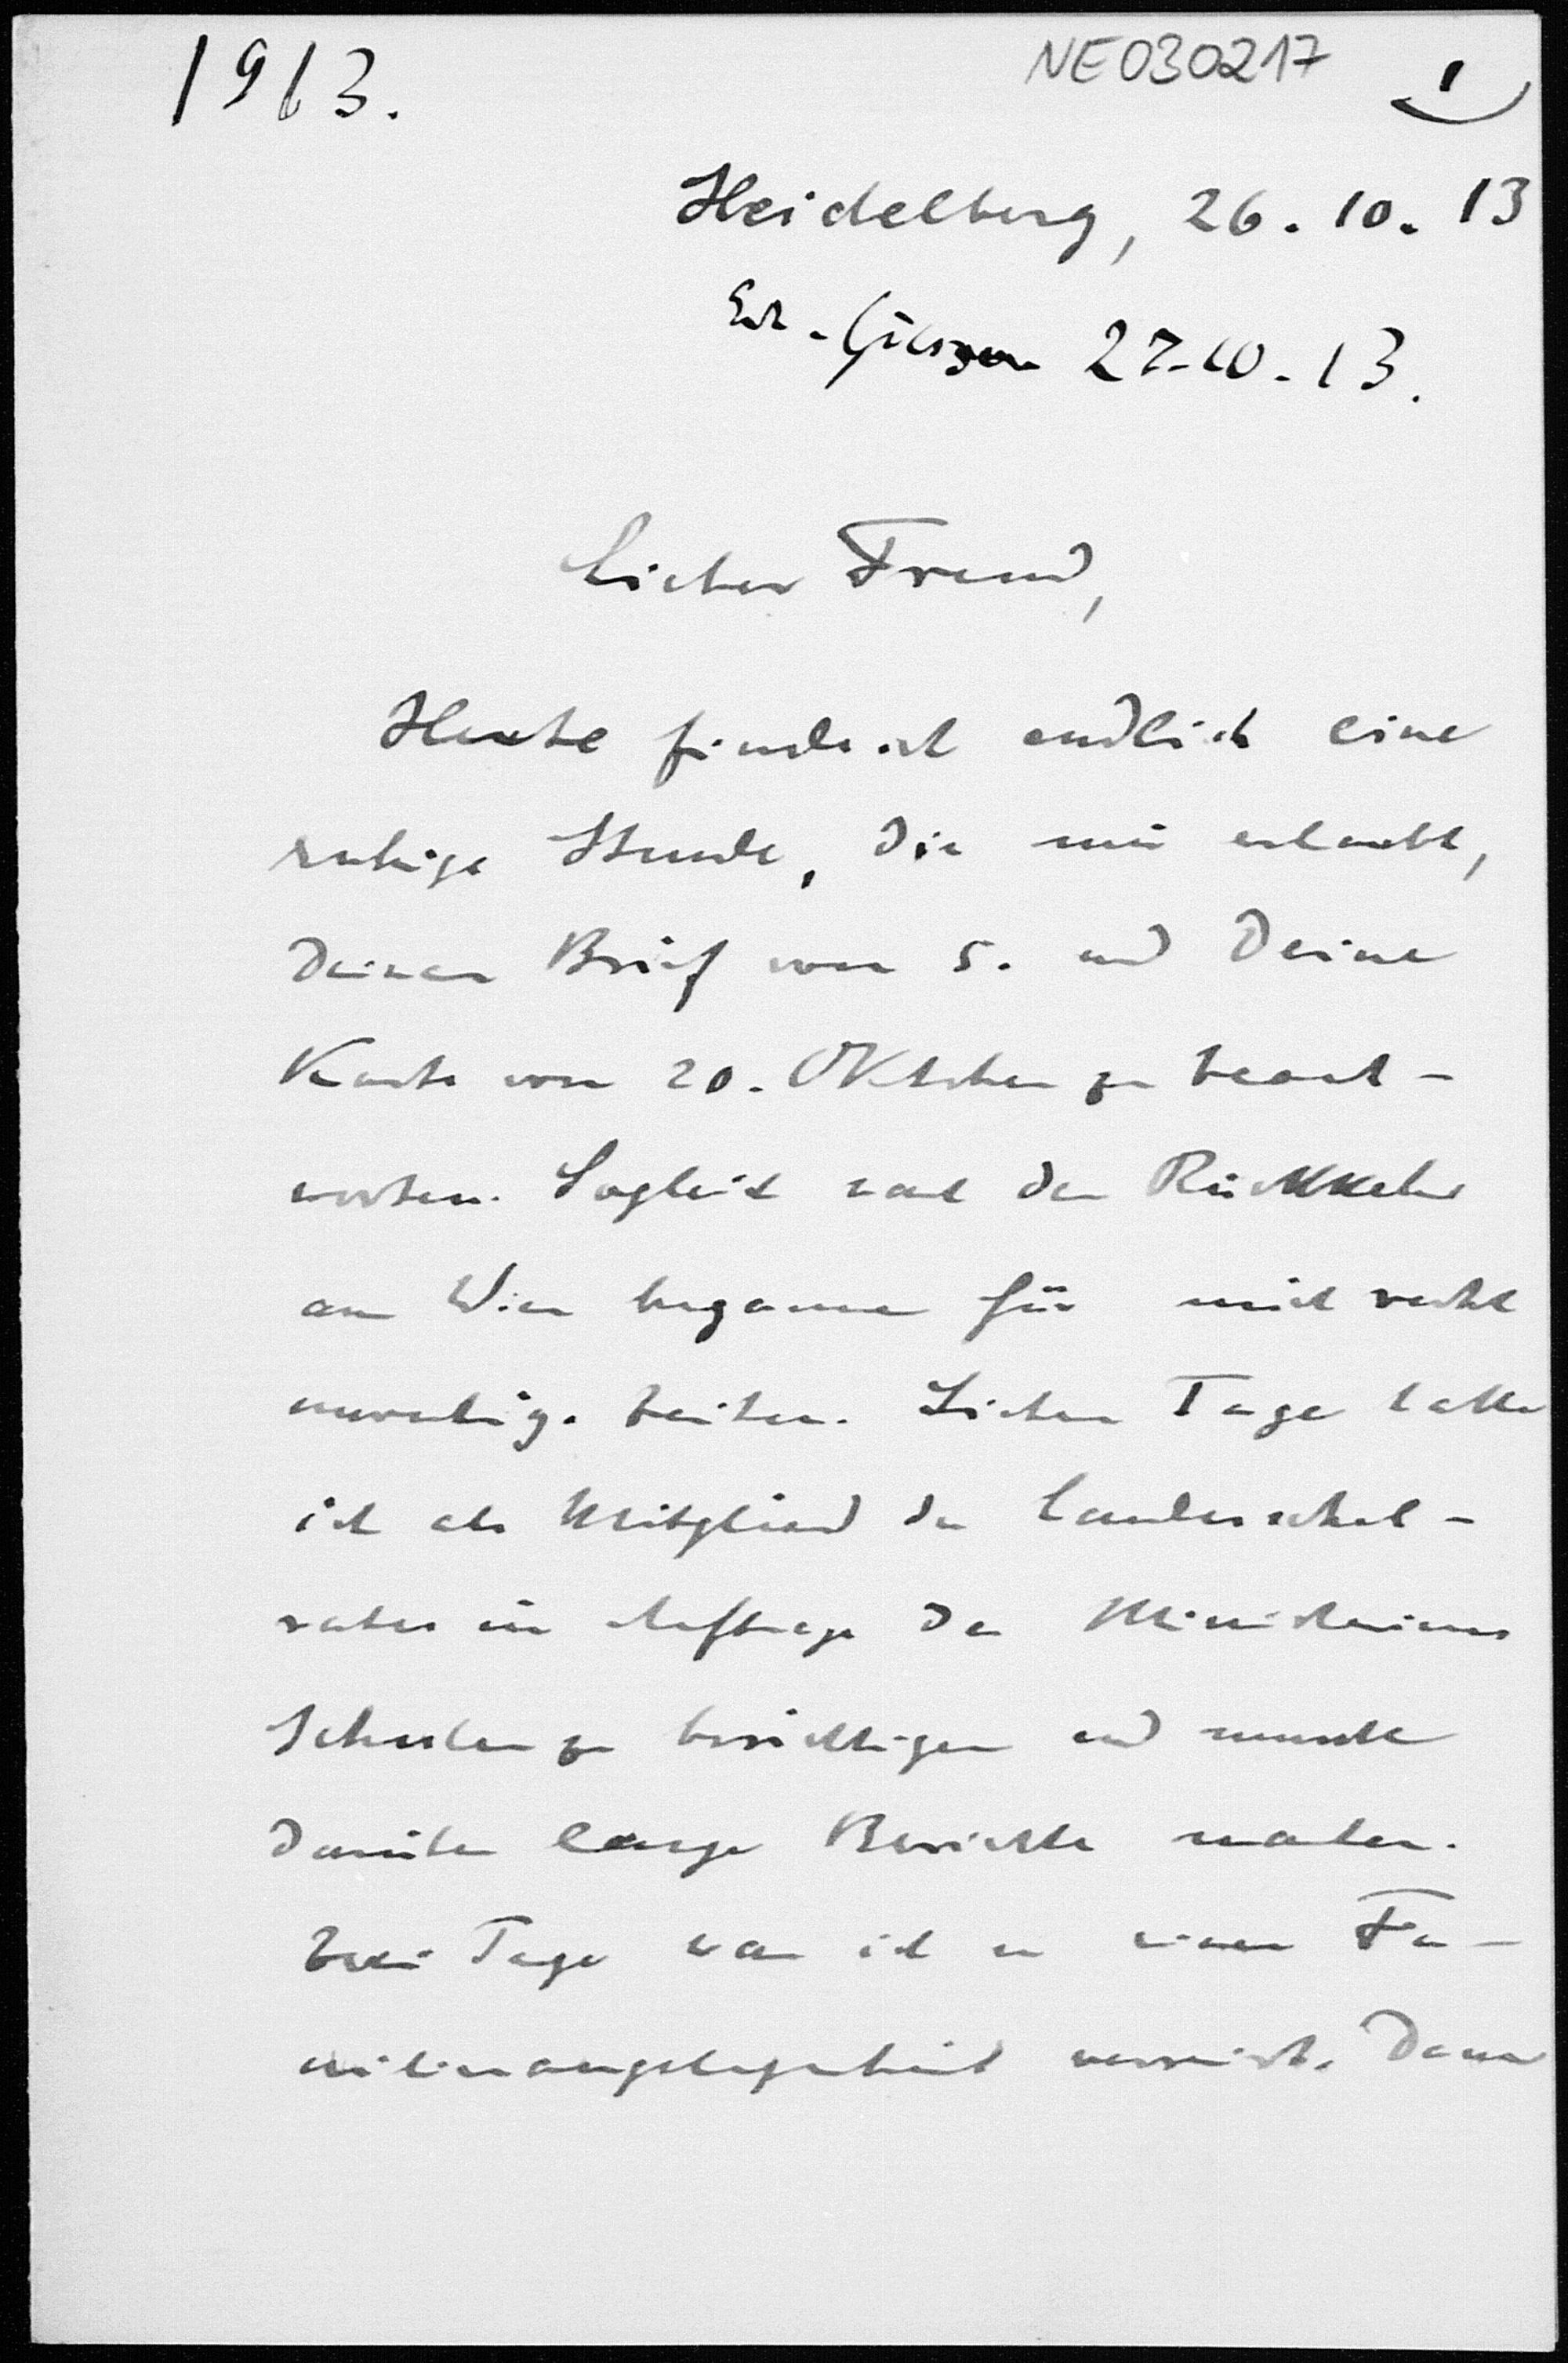 1913.
NE030217
1
Heidelberg, 26. 10. 13
Erh. Giessen 27.10.13.
Lieber Freund,
Heute finde ich endlich eine
ruhige Stunde, die mir erlaubt,
Deinen Brief vom 5. und Deine
Karte vom 20. Oktober zu beant-
worten. Sogleich nach der Rückkehr
aus Wien begannen für mich recht
unruhige Zeiten. Sieben Tage hatte
ich als Mitglied des Landesschul-
rates im Auftrage des Ministeriums
Schulen zu besichtigen und musste
darüber lange Berichte machen.
Zwei Tage war ich in einer Fa-
milienangelegenheit verreist. Dann